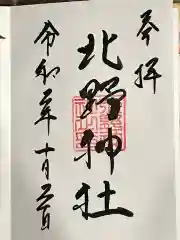 奉拝
北野神社
令和二年十月二百